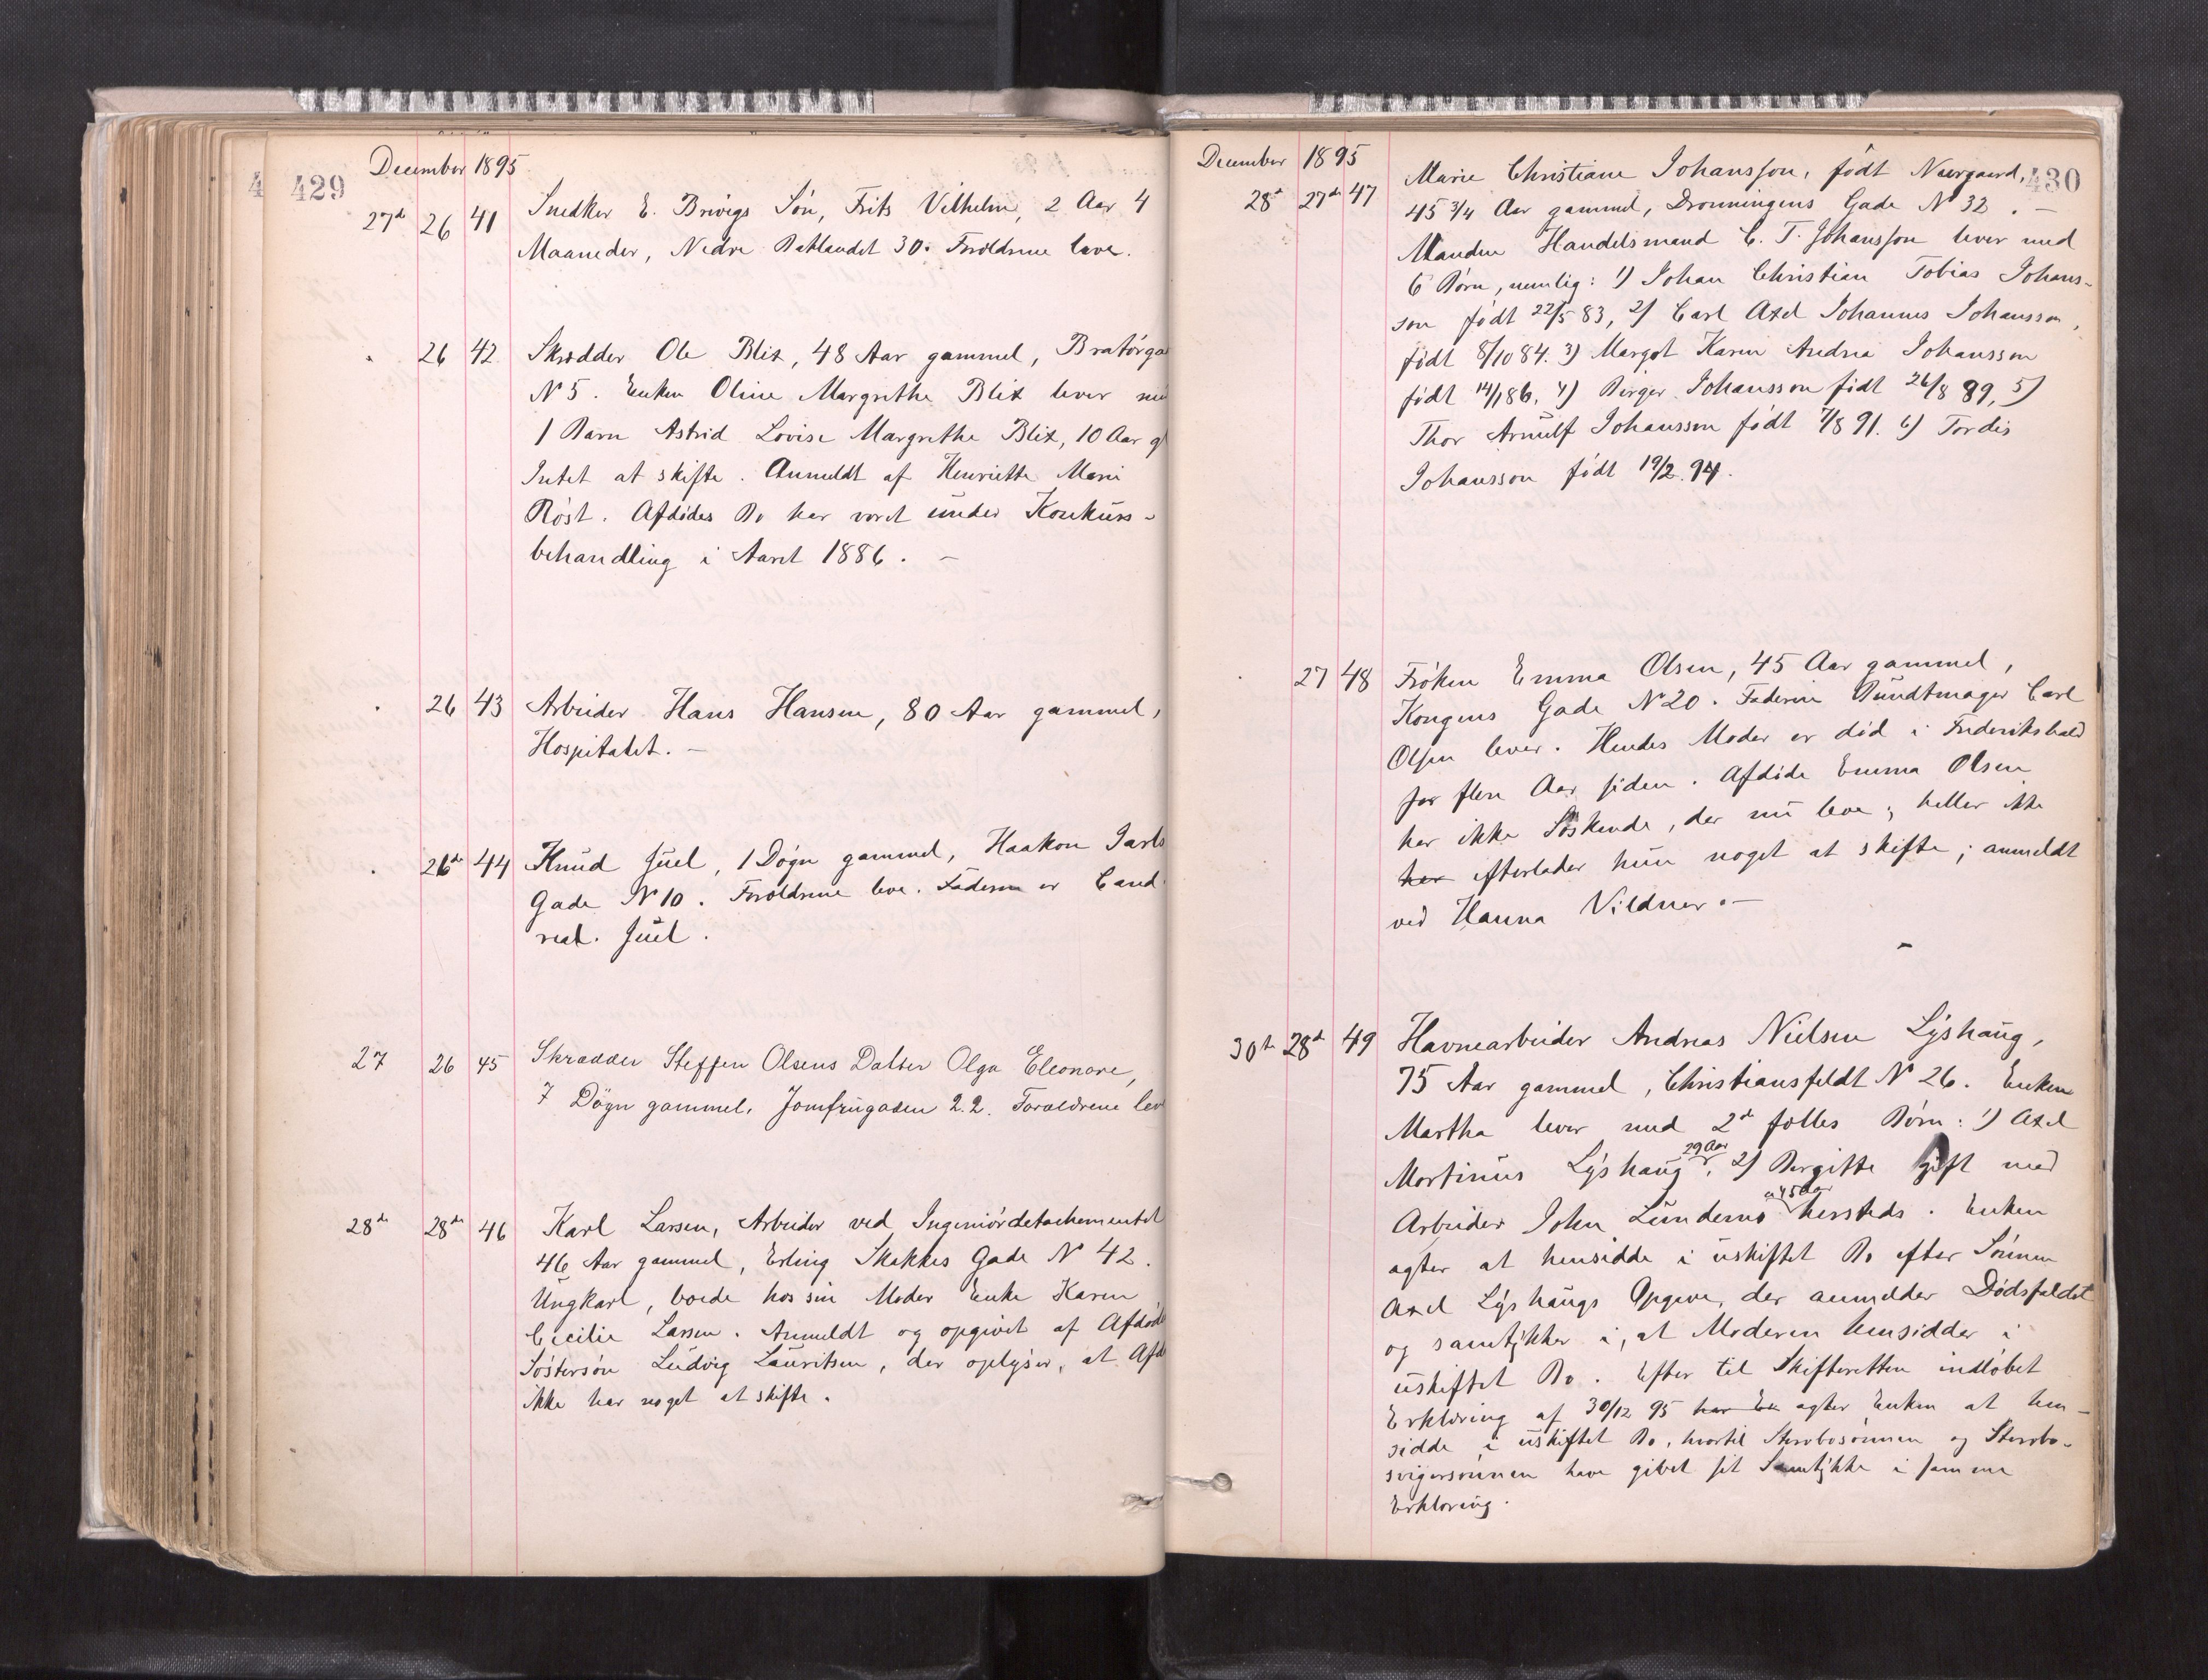 429
December 1895
27d 26 41 Snedker E. Brevigs Søn, Frits Vilhelm, 2 Aar 4
Maaneder, Nedre Baklandet 30. Forældrene leve.
" 26 42 Skrædder Ole Blix, 48 Aar gammel, Bratørga
N° 5. Enken Oline Margrethe Blix lever med
1 Barn Astrid Lovise Margrethe Blix, 10 Aar gl
Intet at skifte. Anmeldt af Henriette Marie
Røst. Afdødes Bo har været under Konkurs-
behandling i Aaret 1886. —
" 26 43 Arbeider Hans Hansen, 80 Aar gammel,
Hospitalet. —
" 26de 44 Knud Juel, 1 Døgn gammel, Haakon Jarls
Gade N° 10. Forældrene leve. Faderen er Cand.
real. Juel.
27 26 45 Skrædder Steffen Olsens Datter Olga Eleonore,
7 Døgn gammel. Jomfrugaden 2.2. Forældrene lev
28de 28de 46 Karl Larsen, Arbeider ved Ingeniørdetachementet
46 Aar gammel, Erling Skakkes Gade N° 42.
Ungkarl, boede hos sin Moder Enke Karen
Cecilie Larsen. Anmeldt og opgivet af Afdøde
Søstersøn Ludvig Lauritsen, der oplyser, at Afd
ikke har noget at skifte.
430
December 1895
28de 27de 47 Marie Christiane Johansson, født Nærgaard,
45 3/4 Aar gammel, Dronningens Gade N° 32. —
Manden Handelsmand C. T. Johansson lever med
6 Børn, nemlig: 1) Johan Christian Tobias Johans-
son født 22/5 83, 2) Carl Axel Johannes Johansson,
født 8/10 84. 3) Margot Karen Andrea Johansson
født 14/1 86, 4) Birger Johansson født 26/8 89, 5)
Thor Arnulf Johansson født 7/8 91. 6) Tordis
Johansson født 19/2. 94.
" 27 48 Frøken Emma Olsen, 45 Aar gammel,
Kongens Gade N° 20. Faderen Bundtmager Carl
Olsen lever. Hendes Moder er død i Frederikshald
for flere Aar siden. Afdøde Emma Olsen
har ikke Søskende, der nu leve; heller ikke
har efterlader hun noget at skifte; anmeldt
ved Hanna Vildner. —
30te 28de 49 Havnearbeider Andreas Nielsen Lyshaug,
75 Aar gammel, Christiansfeldt N° 26. Enken
Martha lever med 2de fælles Børn: 1) Axel
Martinus Lyshaug 29 Aar, 2) Bergitte gift med
Arbeider John Lundemo er 45 Aar hersteds. Enken
agter at hensidde i uskiftet Bo efter Sønnen
Axel Lyshaugs Opgive, der anmelder Dødsfaldet
og samtykker i, at Moderen hensidder i
uskiftet Bo. Efter til Skifteretten indløbet
Erklæring af 30/12 95 har En agter Enken at hen-
sidde i uskiftet Bo, hvortil Stervbosønnen og Stervbo-
svigersønnen have givet sit Samtykke i samme
Erklæring.